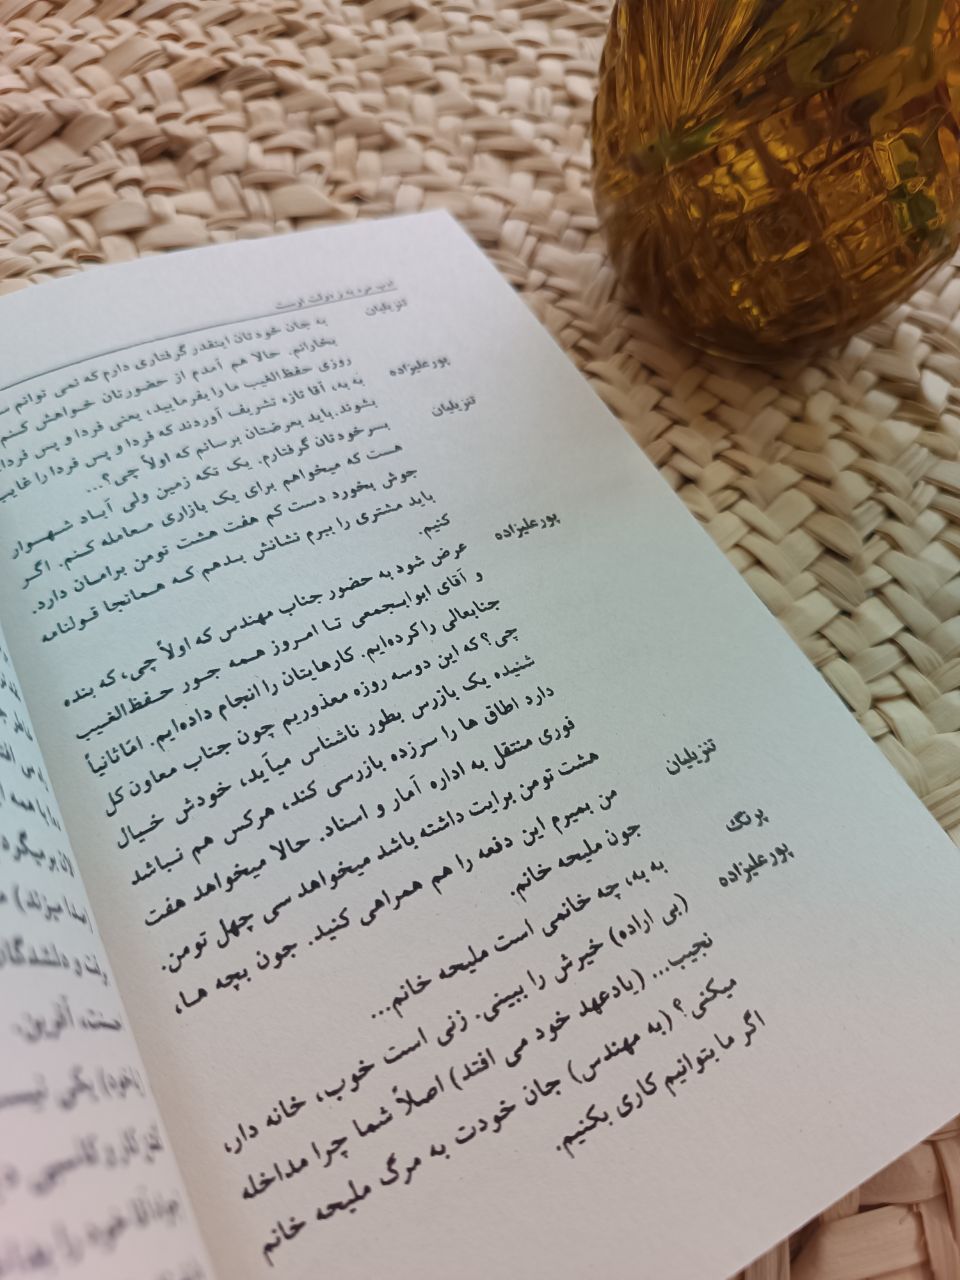 ادب مرد به ز دولت اوست
تنزیلیان به جان خودتان اینقدر گرفتاری دارم که نمی توانم
بخارانم. حالا هم آمدم از حضورتان خواهش کنم
روزی حفظ‌الغیب ما را بفرمایید، یعنی فردا و پس فردا
پورعلیزاده به به، آقا تازه تشریف آوردند که فردا و پس فردا را
بشوند. باید بعرضتان برسانم که اولاً چی؟...
تنزیلیان بسرخودتان گرفتارم. یک تکه زمین ولی آباد شهوار
هست که میخواهم برای یک بازاری معامله کنم. اگر
جوش بخورد دست کم هفت هشت تومن برامان دارد.
باید مشتری را ببرم نشانش بدهم که همانجا قولنامه
کنیم.
پورعلیزاده عرض شود به حضور جناب مهندس که اولاً چی، که بنده
و آقای ابوابجمعی تا امروز همه جور حفظ‌الغیب
جنابعالی را کرده‌ایم. کارهایتان را انجام داده‌ایم. امّا ثانیاً
چی؟ که این دوسه روزه معذوریم چون جناب معاون کل
شنیده یک بازرس بطور ناشناس میآید، خودش خیال
دارد اطاق ها را سرزده بازرسی کند، هرکس هم نباشد
فوری منتقل به اداره آمار و اسناد. حالا میخواهد هفت
هشت تومن برایت داشته باشد میخواهد سی چهل تومن.
تنزیلیان من بمیرم این دفعه را هم همراهی کنید. جون بچه ها،
جون ملیحه خانم.
پرنگ به به، چه خانمی است ملیحه خانم...
پورعلیزاده (بی اراده) خیرش را ببینی. زنی است خوب، خانه دار،
نجیب... (یادعهد خود می افتد) اصلاً شما چرا مداخله
میکنی؟ (به مهندس) جان خودت به مرگ ملیحه خانم
اگر ما بتوانیم کاری بکنیم.